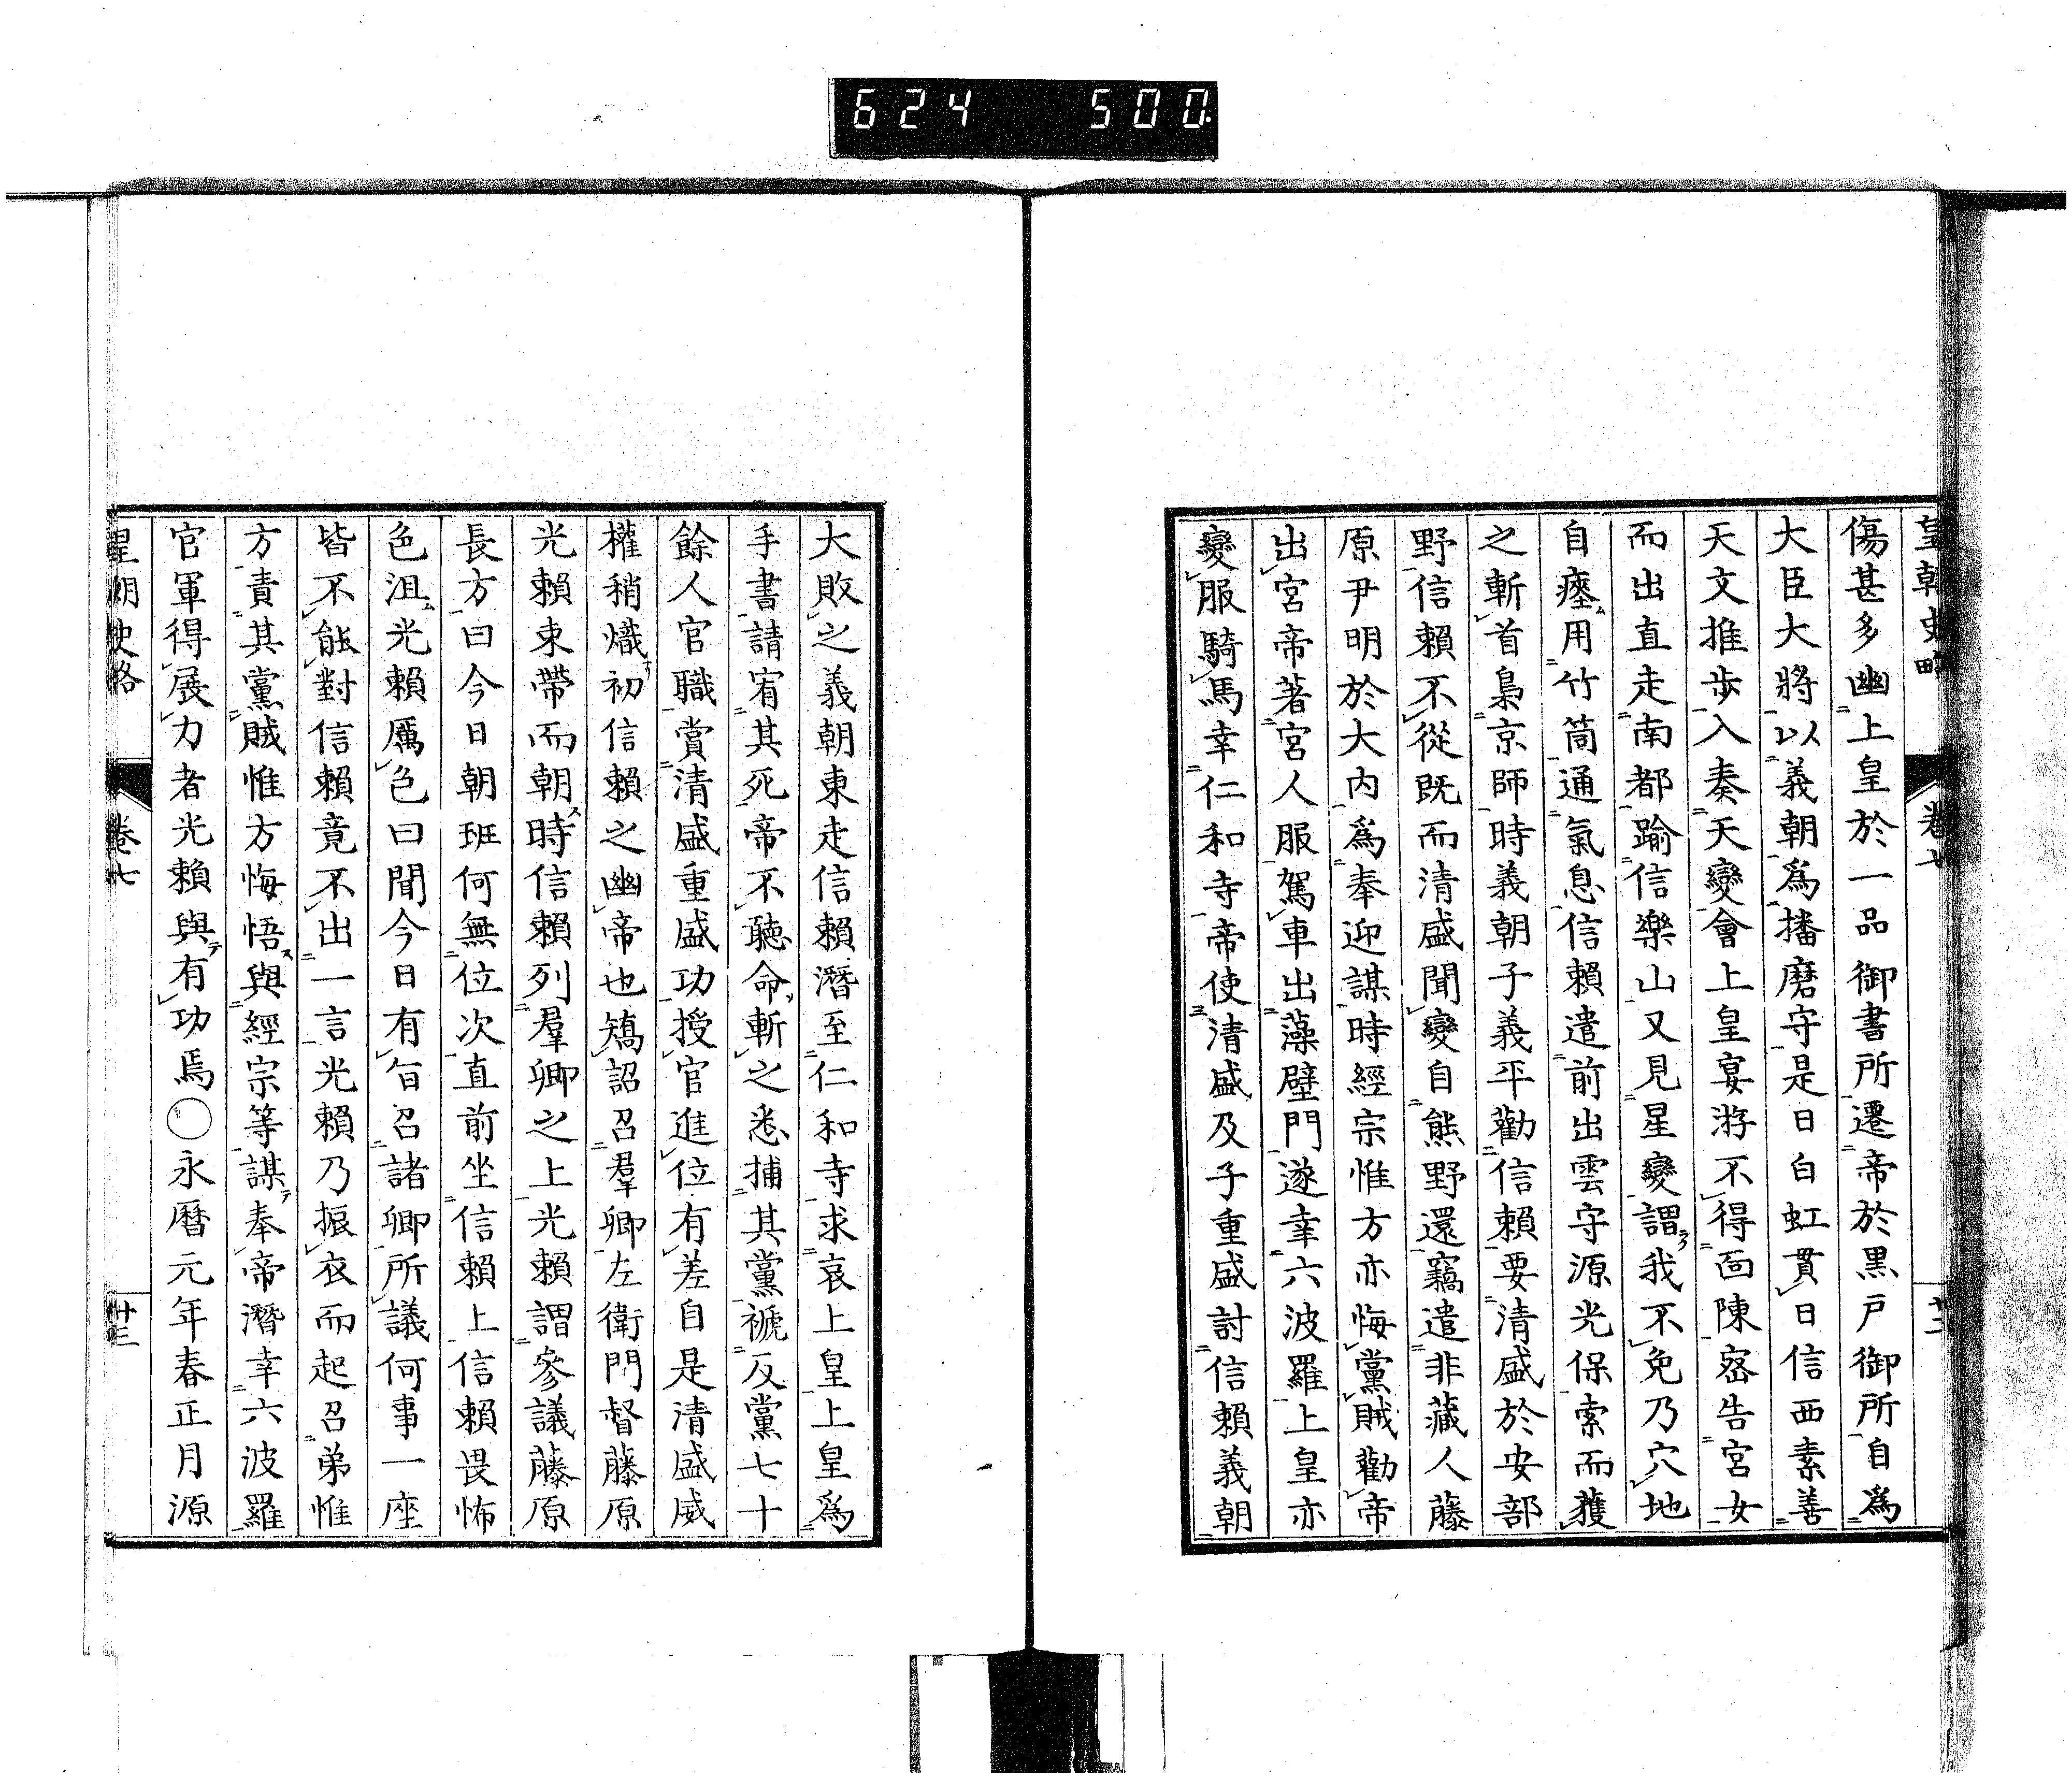 624 500.
皇朝史略 卷七 廿二
傷甚多幽上皇於一品御書所遷帝於黒戸御所自爲
大臣大將以義朝爲播磨守是日白虹貫日信西素善
天文推歩入奏天變會上皇宴游不得面陳密告宮女
而出直走南都踰信樂山又見星變謂我不免乃穴地
自瘞用竹筒通氣息信賴遣前出雲守源光保索而獲
之斬首梟京師時義朝子義平勸信賴要清盛於安部
野信賴不從既而清盛聞變自熊野還竊遣非藏人藤
原尹明於大内爲奉迎謀時經宗惟方亦悔黨賊勸帝
出宮帝著宮人服駕車出藻壁門遂幸六波羅上皇亦
變服騎馬幸仁和寺帝使清盛及子重盛討信賴義朝
大敗之義朝東走信賴潛至仁和寺求哀上皇上皇爲
手書請宥其死帝不聽命斬之悉捕其黨褫反黨七十
餘人官職賞清盛重盛功授官進位有差自是清盛威
權稍熾初信賴之幽帝也矯詔召羣卿左衛門督藤原
光賴束帶而朝時信賴列羣卿之上光賴謂參議藤原
長方曰今日朝班何無位次直前坐信賴上信賴畏怖
色沮光賴厲色曰聞今日有旨召諸卿所議何事一座
皆不能對信賴竟不出一言光賴乃振衣而起召弟惟
方責其黨賊惟方悔悟與經宗等謀奉帝潛幸六波羅
官軍得展力者光賴與有功焉○永曆元年春正月源
皇朝史略 卷七 廿三